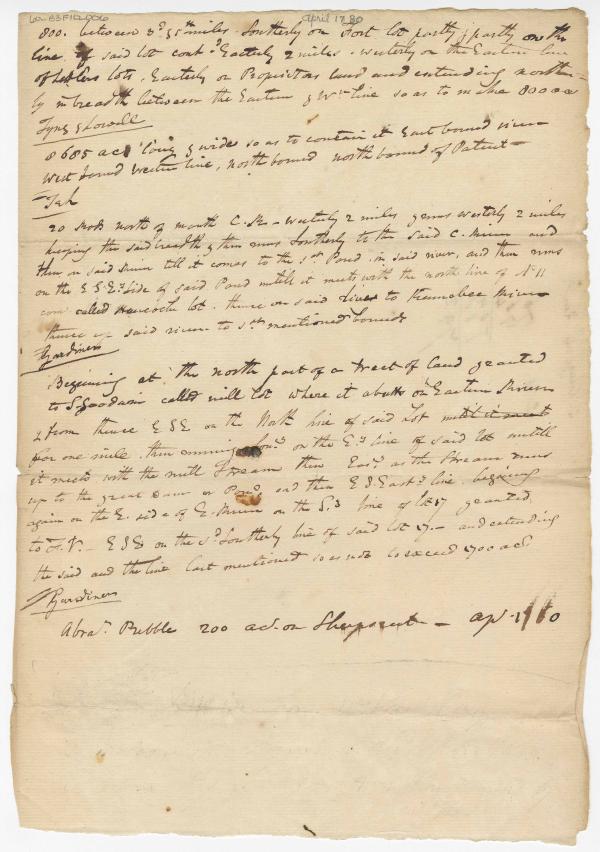 April 17 80
800. between 3d & 5th miles. Southerly on Fort lot partly & partly on the
line of said lot contd Easterly 2 miles. Westerly on the Eastern line
of settlers lots, Easterly on Proprietors land and extending north-
ly in breadth between the Eastern & Wn line so as to make 800 acr
Tyng & Lowell
8685 acs long & wide so as to contain it East bound river
West bound Western line, north bound north bound of Patent
20 rods north of mouth C. - Westerly 2 miles & runs westerly 2 miles
keeping the said breadth & then runs Southerly to the said C. River and
then on said river till it comes to the 1st Pond in said river, and then runs
on the E S E side of said Pond untill it meets with the north line of No 11
com called Hancocks lot. thence on said line to Kennebec River
thence up said river to 1st mentioned bounds
Gardiners
Beginning at the north part of a tract of land granted
to S. Goodwin called mill lot where it abutts on Eastern River
& from thence E S E on the North line of said Lot until it meets
for one mile. then running on the Es line of said lot untill
it meets with the mill Stream then as the Stream runs
up to the great Dam or Pond and then E S East line, begining
again on the E. side of E. River on the line of lot 17 granted
to E S E on the sd Southerly line of said lot 17 - and extending
the said and the line last mentioned so as not to exceed 1700 acs
Gardiners
Abram Prebble 200 acs on Sheepscutt - Ap. 0